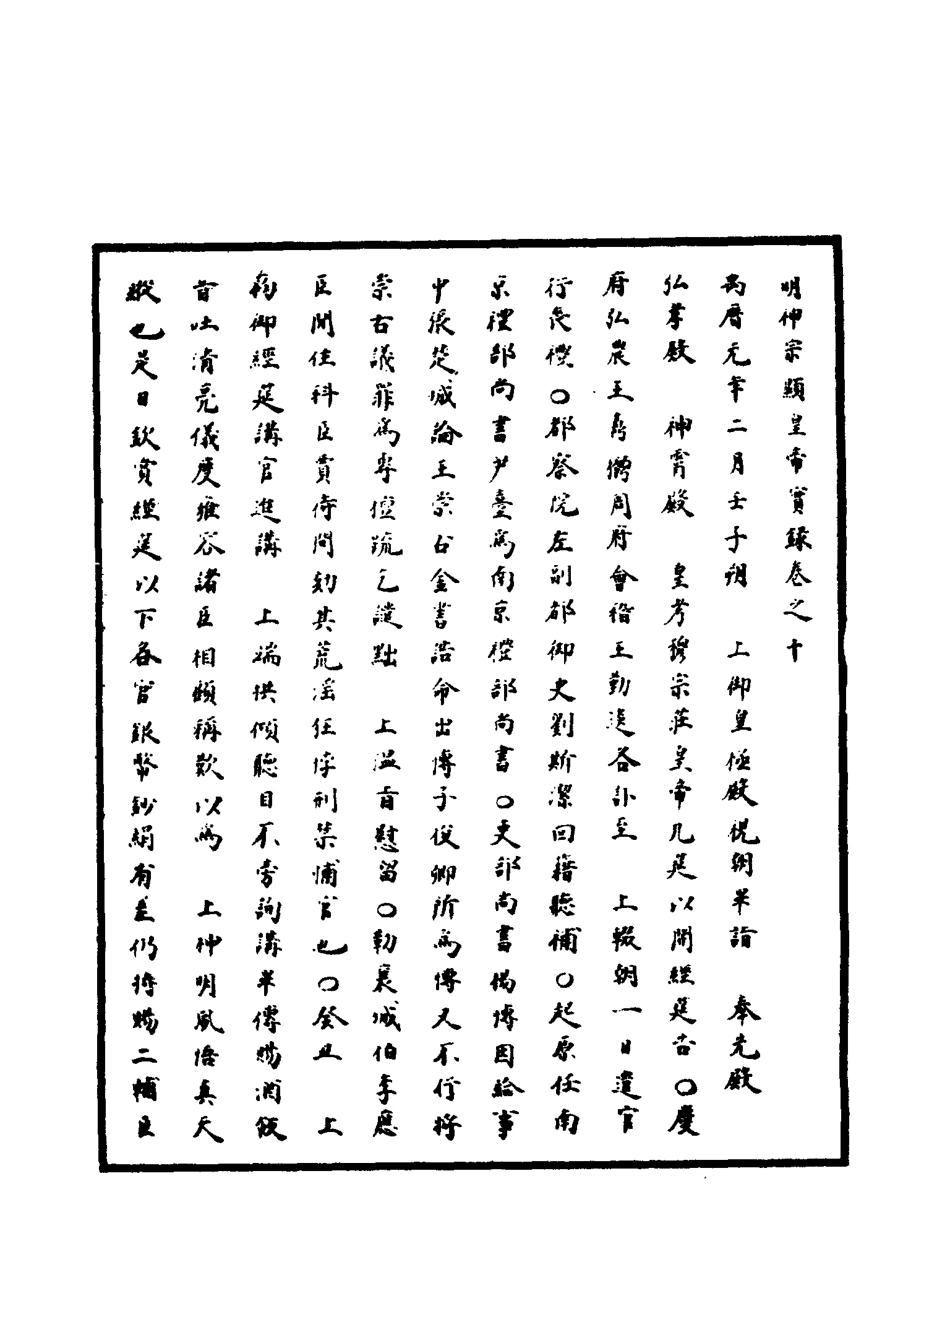 明神宗顯皇帝實錄卷之十
萬曆元年二月壬子朔　上御皇極殿視朝畢詣　奉先殿
弘孝殿　神霄殿　皇考穆宗莊皇帝几筵以開經筵告○慶
府弘農王　周府會稽王勤　各訃至　上輟朝一日遣官
行喪禮○都察院左副都御史劉斯潔回籍聽補○起原任南
京禮部尚書尹臺為南京禮部尚書○吏部尚書楊博因給事
中張楚城論王崇古金書誥命出博子俊卿所為博又不行將
崇古議罪為專擅疏乞譴黜　上溫旨慰留○勒襄城伯李應
臣閒住科臣賈待問劾其荒淫狂悖刑禁捕官也○癸丑　上
初御經筵講官進講　上端拱傾聽目不旁詢講畢傳賜酒飯
音吐清亮儀度雍容諸臣相顧稱歎以為　上神明夙悟真天
縱也是日欽賞經筵以下各官銀幣鈔絹有差仍特賜二輔臣